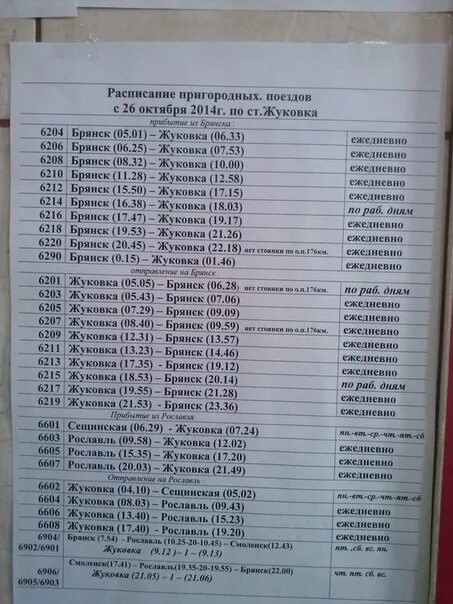 Расписание пригородных. поездов
с 26 октября 2014г. по ст.Жуковка
прибытие из Брянска :
6204 Брянск (05.01) – Жуковка (06.33) ежедневно
6206 Брянск (06.25) – Жуковка (07.53) ежедневно
6208 Брянск (08.32) – Жуковка (10.00) ежедневно
6210 Брянск (11.28) – Жуковка (12.58) ежедневно
6212 Брянск (15.50) – Жуковка (17.15) ежедневно
6214 Брянск (16.38) – Жуковка (18.03) по раб. дням
6216 Брянск (17.47) – Жуковка (19.17) ежедневно
6218 Брянск (19.53) – Жуковка (21.26) ежедневно
6220 Брянск (20.45) – Жуковка (22.18) нет стоянки по о.п.176км. ежедневно
6290 Брянск (0.15) – Жуковка (01.46) ежедневно
отправление на Брянск :
6201 Жуковка (05.05) – Брянск (06.28) нет стоянки по о.п.176км. по раб. дням
6203 Жуковка (05.43) – Брянск (07.06) ежедневно
6205 Жуковка (07.29) – Брянск (09.09) ежедневно
6207 Жуковка (08.40) – Брянск (09.59) нет стоянки по о.п.176км. ежедневно
6209 Жуковка (12.31) – Брянск (13.57) ежедневно
6211 Жуковка (13.23) – Брянск (14.46) ежедневно
6213 Жуковка (17.35) - Брянск (19.12) ежедневно
6215 Жуковка (18.53) – Брянск (20.14) ежедневно
6217 Жуковка (19.55) – Брянск (21.28) по раб. дням
6219 Жуковка (21.53) – Брянск (23.36) ежедневно
Прибытие из Рославля
6601 Сещинская (06.29) - Жуковка (07.24) пн.-вт.-ср.-чт.-пт.-сб
6603 Рославль (09.58) – Жуковка (12.02)
6605 Рославль (15.35) – Жуковка (17.20) ежедневно
6607 Рославль (20.03) – Жуковка (21.49) ежедневно
Отправление на Рославль
6602 Жуковка (04.10) – Сещинская (05.02)
6604 Жуковка (08.03) – Рославль (09.43) пн.-вт.-ср.-чт.-пт.-сб
6606 Жуковка (13.40) – Рославль (15.23) ежедневно
6608 Жуковка (17.40) - Рославль (19.20) ежедневно
6904/ Брянск (7.54) - Рославль (10.25-20-10.45) – Смоленск(12.43)
6902/6901 Жуковка (9.12) – 1 – (9.13) пт. ,сб. вс. пн.
Смоленск(17.41) – Рославль(19.35-20-19.55) – Брянск(22.00)
6906/ чт. пт. сб. вс.
6905/6903 Жуковка (21.05) – 1 – (21.06)